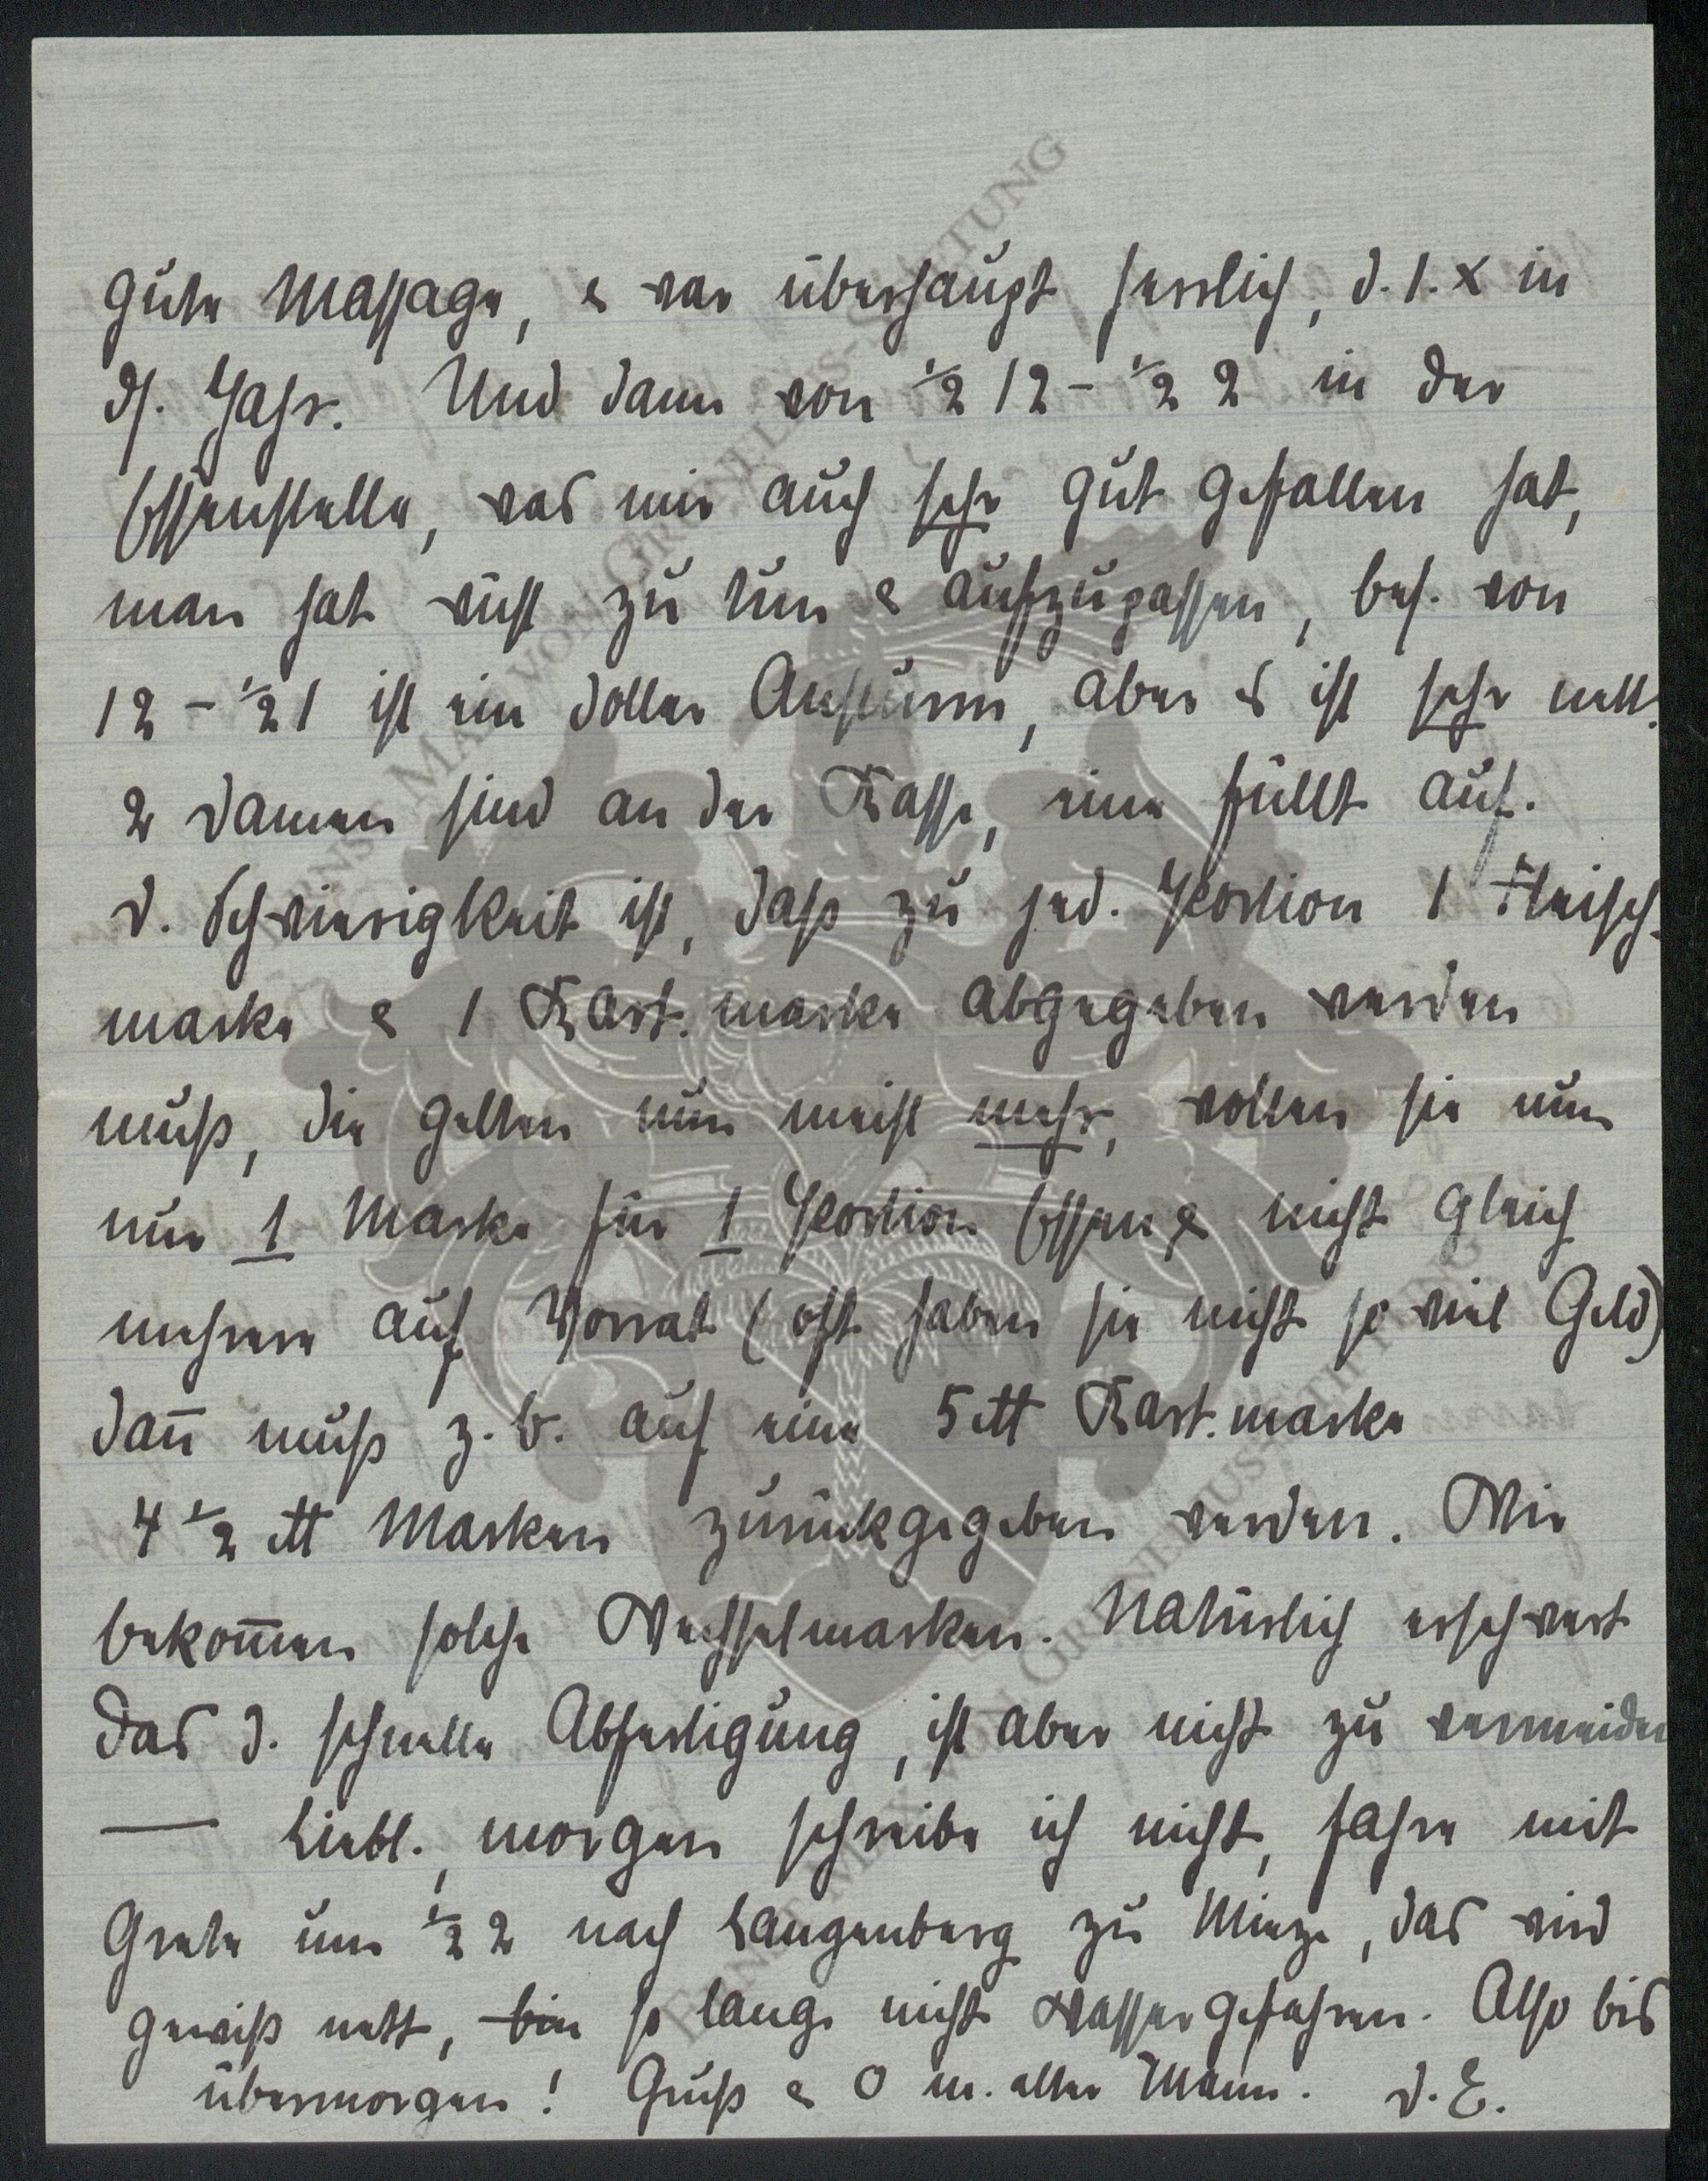 gute Massage, & war überhaupt herrlich, d. 1. x in
ds. Jahr. Und dann von ½ 12 - ½ 2 in der
Essenstelle, was mir auch sehr gut gefallen hat,
man hat wüst zu tun & aufzupassen, bes. von
12 - ½ 1 ist ein doller Ansturm, aber es ist sehr nett.
2 Damen sind an der Kasse, eine füllt auf.
D. Schwierigkeit ist, dass zu jed. Portion 1 Fleisch-
marke & 1 Kart. marke abgegeben werden
muss, die gelten nun meist mehr, wollen sie nun
nur 1 Marke für 1 Portion Essen & nicht gleich
mehrere auf Vorrat (oft haben sie nicht so viel Geld)
dan̅ muss z. B. auf eine 5 ℔ Kart. marke
4 ½ ℔ Marken zurückgegeben werden. Wir
bekom̅en solche Wechselmarken. Natürlich erschwert
das d. schnelle Abfertigung, ist aber nicht zu vermeiden
— Liebl., morgen schreibe ich nicht, fahre mit
Grete um ½ 2 nach Langenberg zu Mieze, das wird
gewiss nett, bin so lange nicht Wasser gefahren. Also bis
übermorgen! Gruss & O m. alter Mann. D. E.
ERNST MAX VON GRUNELIUS-STIFTUNG
ERNST MAX VON GRUNELIUS-STIFTUNG